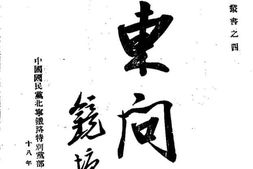 叢書之四
東向
鏡
中國國民黨北寧鐵路特別黨部
十八年